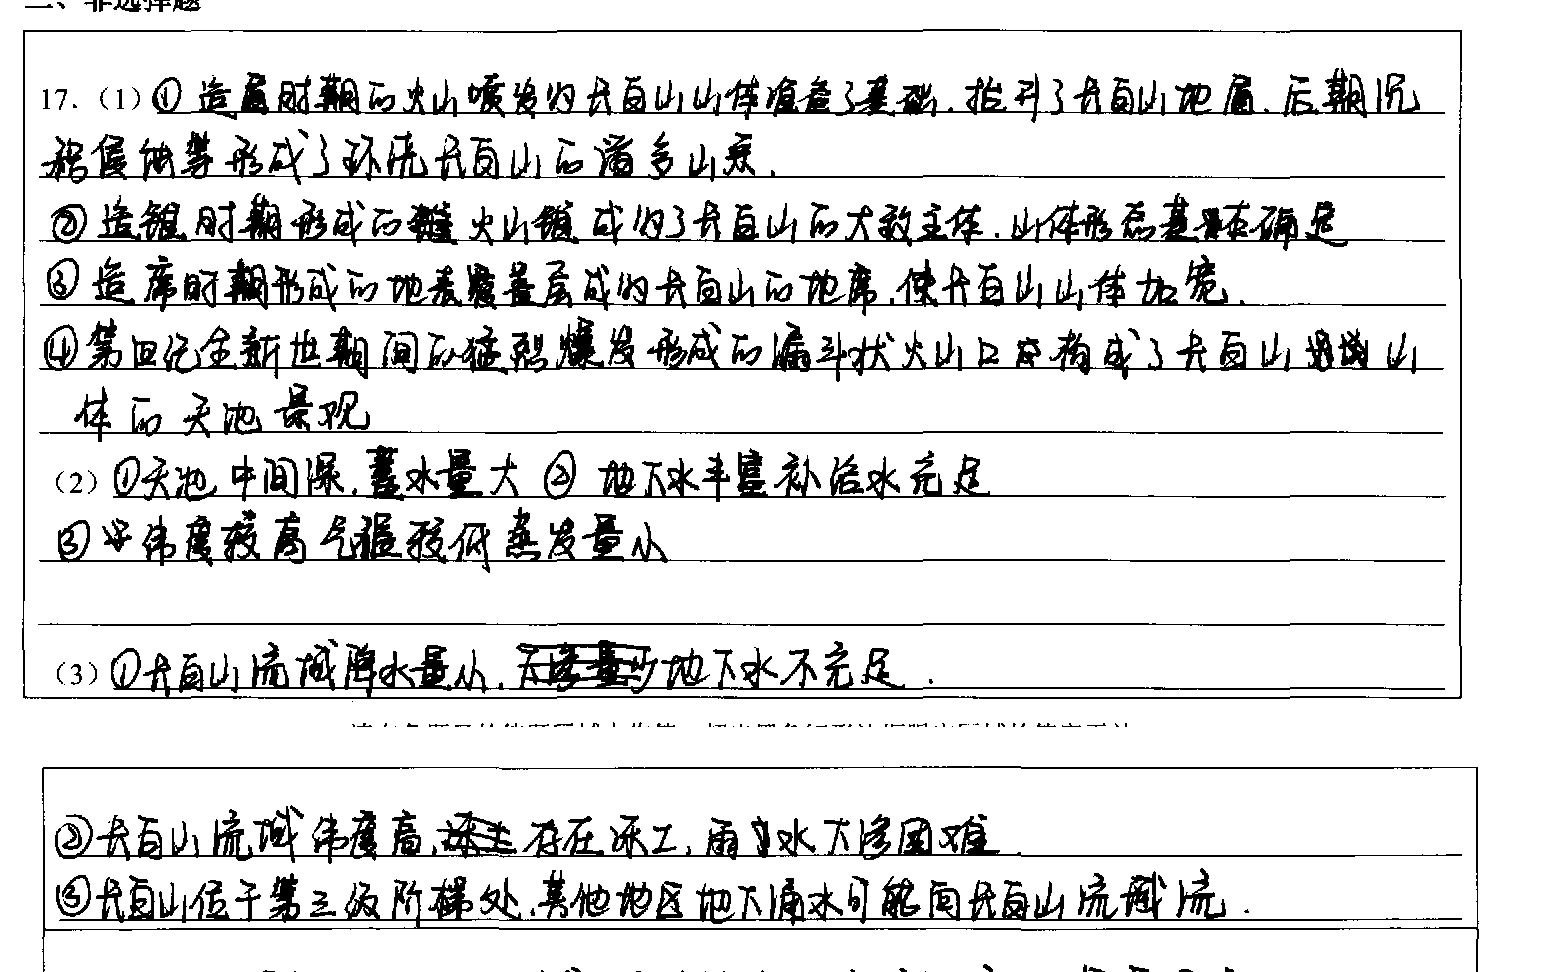 二、非选择题
17.（1）① 造盾时期的火山喷发为长白山山体准备了基础，抬升了长白山地盾，后期沉
积侵蚀等形成了环绕长白山的诸多山系.
② 造锥时期形成的 火山锥成为了长白山的大致主体，山体形态基本确定
③ 造席时期形成的地表覆盖层成为长白山的地席，使长白山山体加宽.
④第四纪全新世期间的猛烈爆发形成的漏斗状火山口 构成了长白山 山
体的天池景观
（2）①天池中间深，蓄水量大 ② 地下水丰富补给水充足
③ 纬度较高气温较低蒸发量小
（3）①长白山流域降水量小， 地下水不充足.
②长白山流域纬度高， 存在冻土，雨水下渗困难.
③长白山位于第三级阶梯处，其他地区地下涌水可能向长白山流域流.